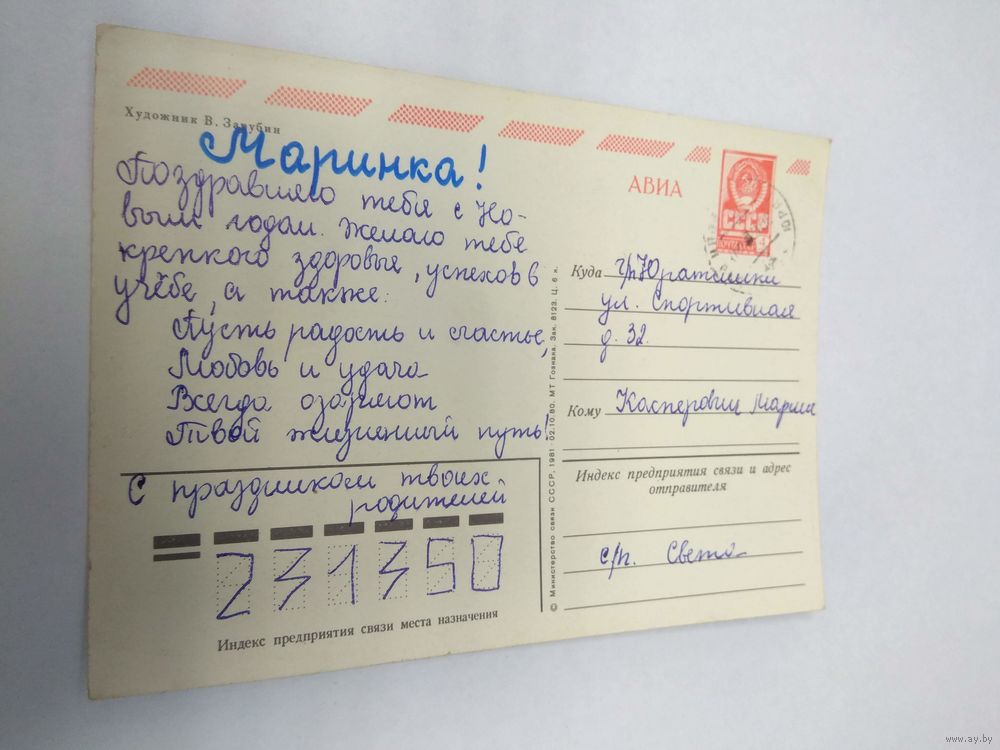 Художник В. Зарубин
Маринка!
Поздравляю тебя с Но-
вым годом. Желаю тебе
крепкого здоровья, успехов в
учёбе, а также:
Пусть радость и счастье,
Любовь и удача
Всегда озаряют
Твой жизненный путь!
С праздником твоих
родителей
231350
Индекс предприятия связи места назначения
© Министерство связи СССР, 1981 · 02.10.80. МТ Гознака. Зак. 8123. Ц. 6 к.
АВИА
СССР
ПОЧТА
4
Куда г/п Юратишки
ул. Спортивная
д. 32.
Кому Касперович Марина
Индекс предприятия связи и адрес
отправителя
с/п. Света
www.ay.by